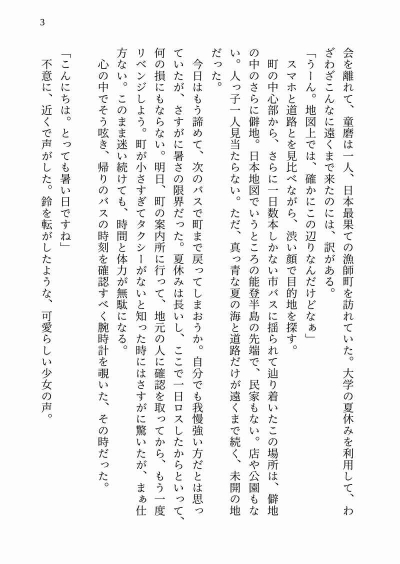 3
会を離れて、童磨は一人、日本最果ての漁師町を訪れていた。大学の夏休みを利用して、わ
ざわざこんなに遠くまで来たのには、訳がある。
「うーん。地図上では、確かにこの辺りなんだけどなぁ」
スマホと道路とを見比べながら、渋い顔で目的地を探す。
町の中心部から、さらに一日数本しかない市バスに揺られて辿り着いたこの場所は、僻地
の中のさらに僻地。日本地図でいうところの能登半島の先端で、民家もない。店や公園もな
い。人っ子一人見当たらない。ただ、真っ青な夏の海と道路だけが遠くまで続く、未開の地
だった。
今日はもう諦めて、次のバスで町まで戻ってしまおうか。自分でも我慢強い方だとは思っ
ていたが、さすがに暑さの限界だった。夏休みは長いし、ここで一日ロスしたからといって、
何の損にもならない。明日、町の案内所に行って、地元の人に確認を取ってから、もう一度
リベンジしよう。町が小さすぎてタクシーがないと知った時にはさすがに驚いたが、まぁ仕
方ない。このまま迷い続けても、時間と体力が無駄になる。
心の中でそう呟き、帰りのバスの時刻を確認すべく腕時計を覗いた、その時だった。
「こんにちは。とっても暑い日ですね」
不意に、近くで声がした。鈴を転がしたような、可愛らしい少女の声。